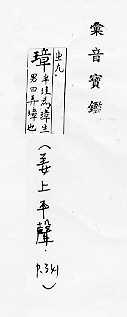 彙音寶鑑
出九．
璋
半圭為璋生
男曰弄璋也
（姜上平聲．
P.341）